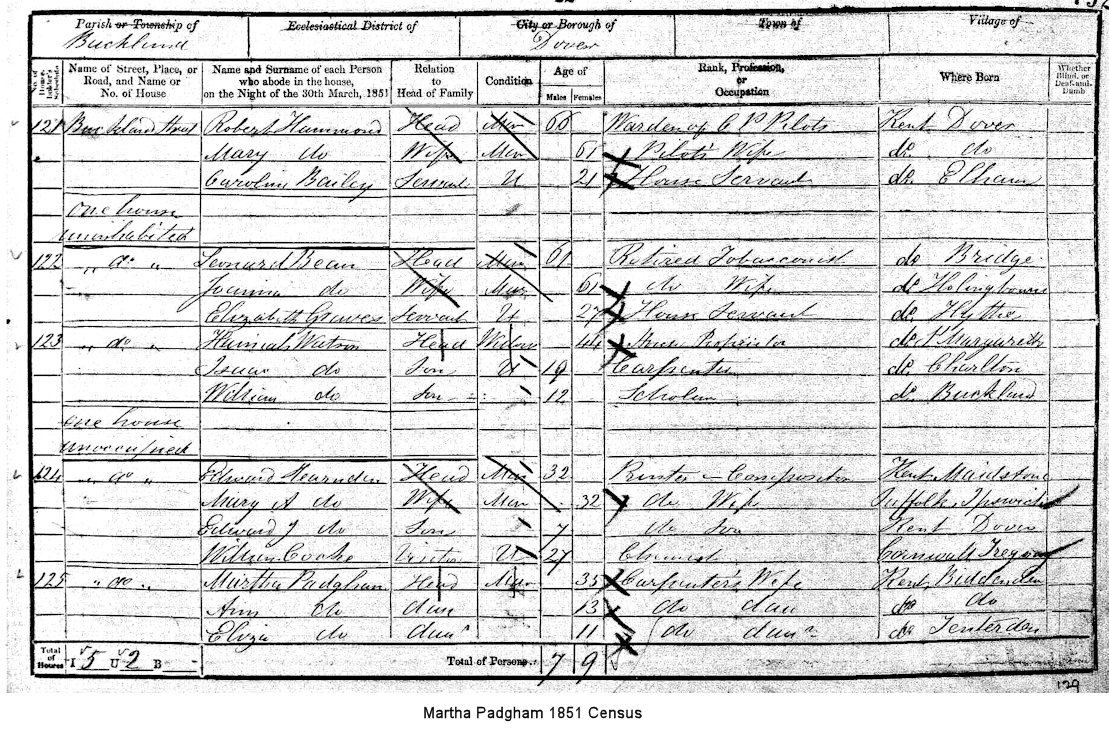 Parish or Township of Ecclesiastical District of City or Borough of Town of Village of
Buckland Dover
Name of Street, Place, or Road, and Name or No. of House Name and Surname of each Person who abode in the house, on the Night of the 30th March, 1851 Relation to Head of Family Condition Age of Males Females Rank, Profession, or Occupation Where Born Whether Blind, or Deaf-and-Dumb
121 Robert Hammond Head Mar 66 Warden of C P Pilots Kent Dover
Mary do Wife Mar 61 Pilot's Wife do do
Caroline Bailey Servant U 21 House Servant do Elham
one house
uninhabited
122 " do " Leonard Bean Head Mar 61 Retired Tobacconist do Bridge
Joanna do Wife Mar 61 do Wife do Holingbourne
Elizabeth Graves Servant U 27 House Servant do Hythe
123 " do " Watson Head Widow 44 Proprietor do St Margarets
Isaac do Son U 19 Carpenter do Charlton
William do Son 12 Scholar do Buckland
one house
unoccupied
124 " do " Edward Hearnden Head Mar 32 Printer - Compositor Kent Maidstone
Mary A do Wife Mar 32 do Wife Suffolk, Ipswich
Edward J do Son 7 do Son Kent Dover
William Cocks Visitor U 27 Chemist Cornwall Tregony
125 " do " Martha Padgham Head Mar 35 Carpenter's Wife Kent Biddenden
Ann do dau 13 do dau do do
Eliza do daur 11 do daur do Tenterden
Total of Houses I 5 U 2 B Total of Persons 7 9
129
Martha Padgham 1851 Census